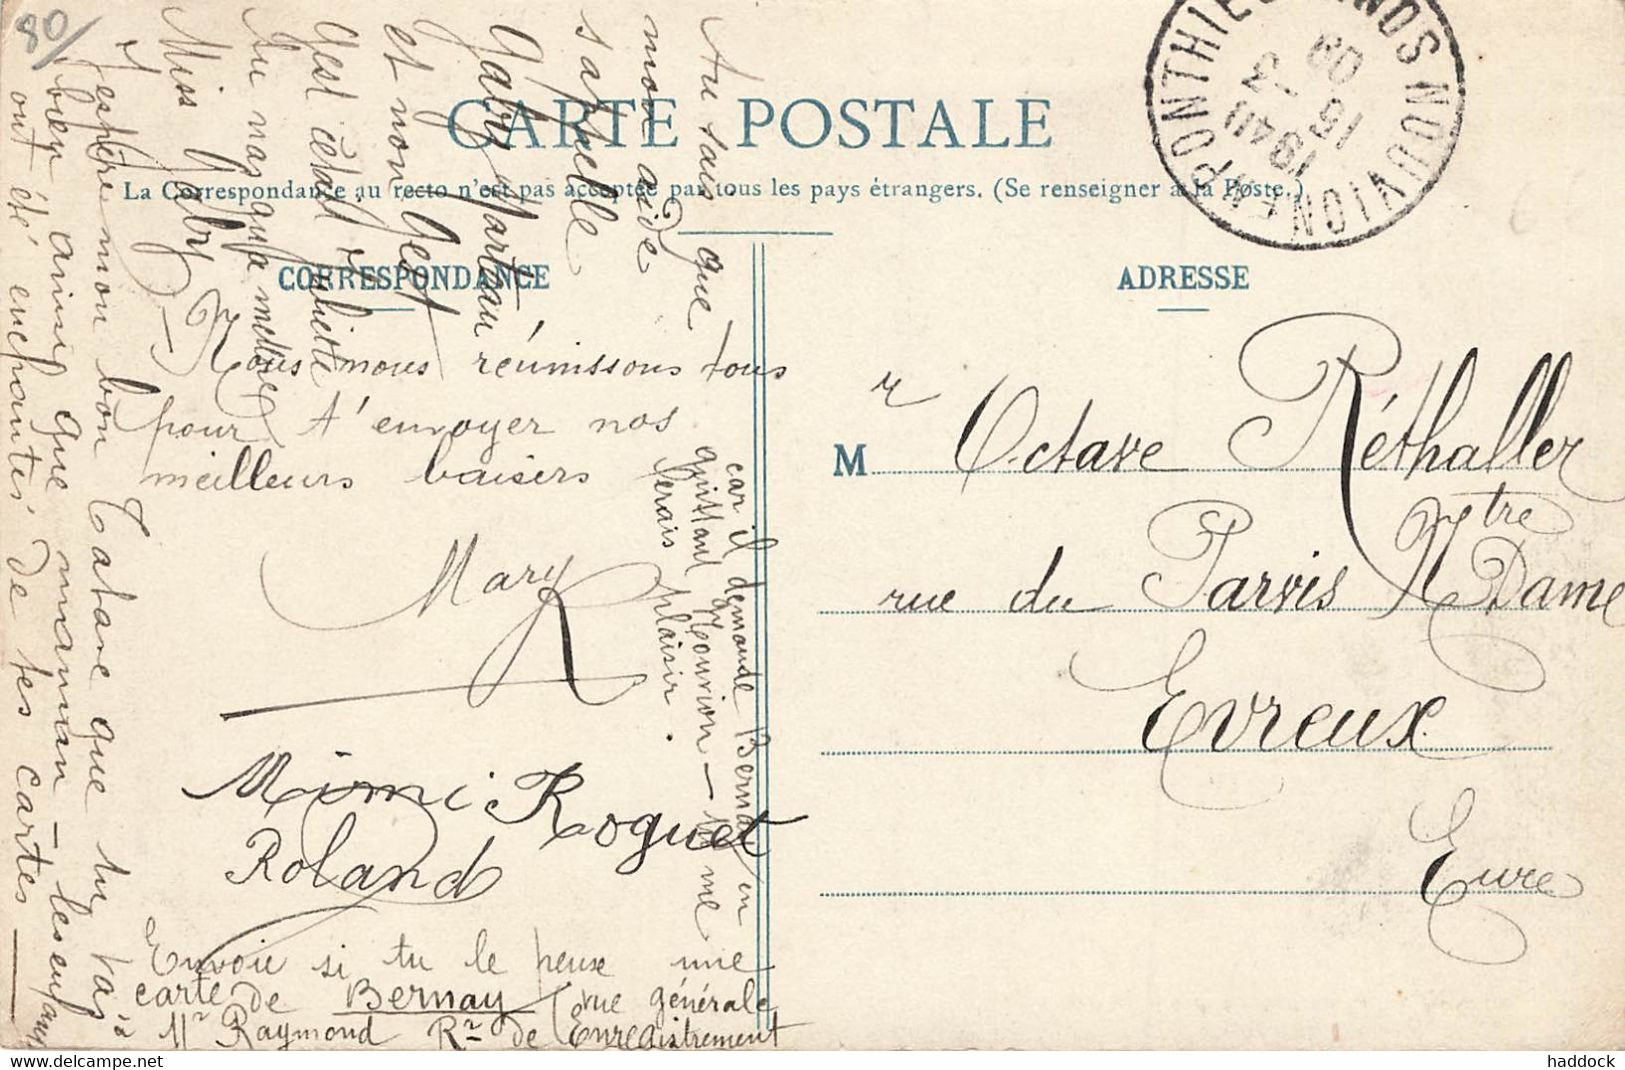 80/
CARTE POSTALE
La Correspondance au recto n'est pas acceptée par tous les pays étrangers. (Se renseigner à la Poste.)
CORRESPONDANCE
ADRESSE
NOUVION EN PONTHIEU
1940
15
3
09
Tu sais que
mon aide
s'appelle
Gaby Marteau
et non Gest
Gest était
Tu n'as qu'à mettre
Miss Gaby
J'espère mon bon Tatave que tu vas
bien ainsi que maman – les enfants
ont été enchantés de tes cartes
Nous nous réunissons tous
pour t'envoyer nos
meilleurs baisers
Mary
Mimi Roguet
Roland
Envoie si tu le peux une
carte de Bernay (vue générale
Mr Raymond Rr de l'Enregistrement
Nouvion – me
car il demande Bernay en
ferais plaisir.
M r Octave Réthaller
rue du Parvis Ntre Dame
Evreux
Eure
haddock